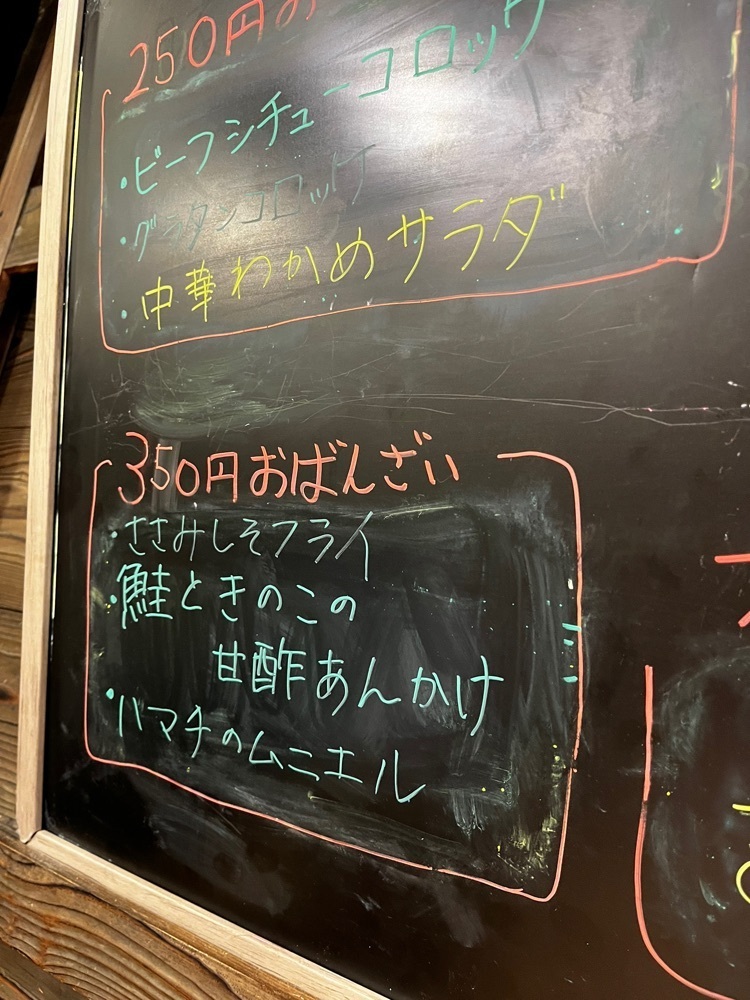 250円お
・ビーフシチューコロッケ
・グラタンコロッケ
・中華わかめサラダ
350円おばんざい
・ささみしそフライ
・鮭ときのこの
甘酢あんかけ
・ハマチのムニエル